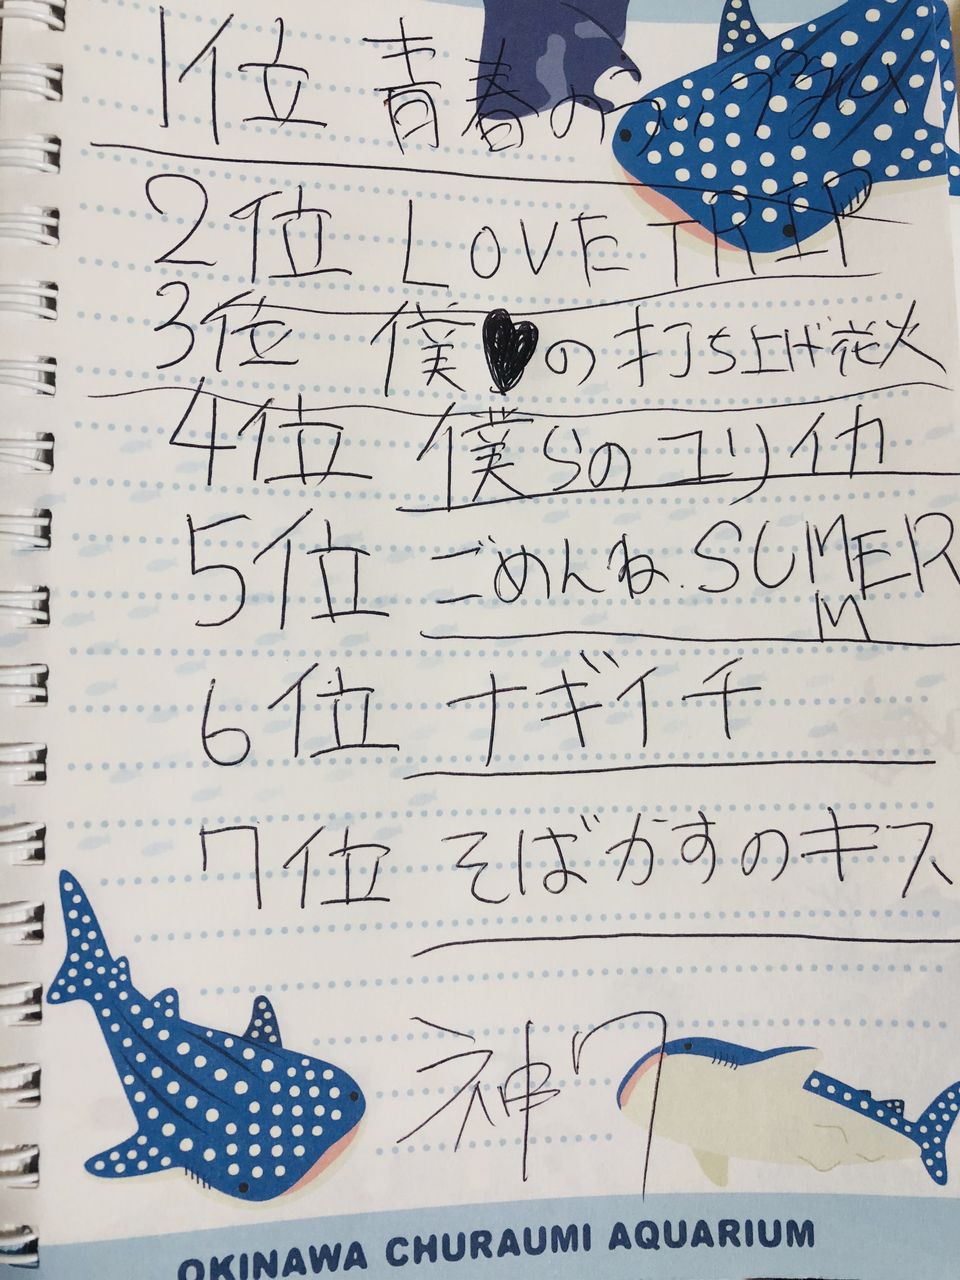 1位 青春の
2位 LOVE TRIP
3位 僕♥の打ち上げ花火
4位 僕らのユリイカ
5位 ごめんね SUMMER
6位 ナギイチ
7位 そばかすのキス
神7
OKINAWA CHURAUMI AQUARIUM